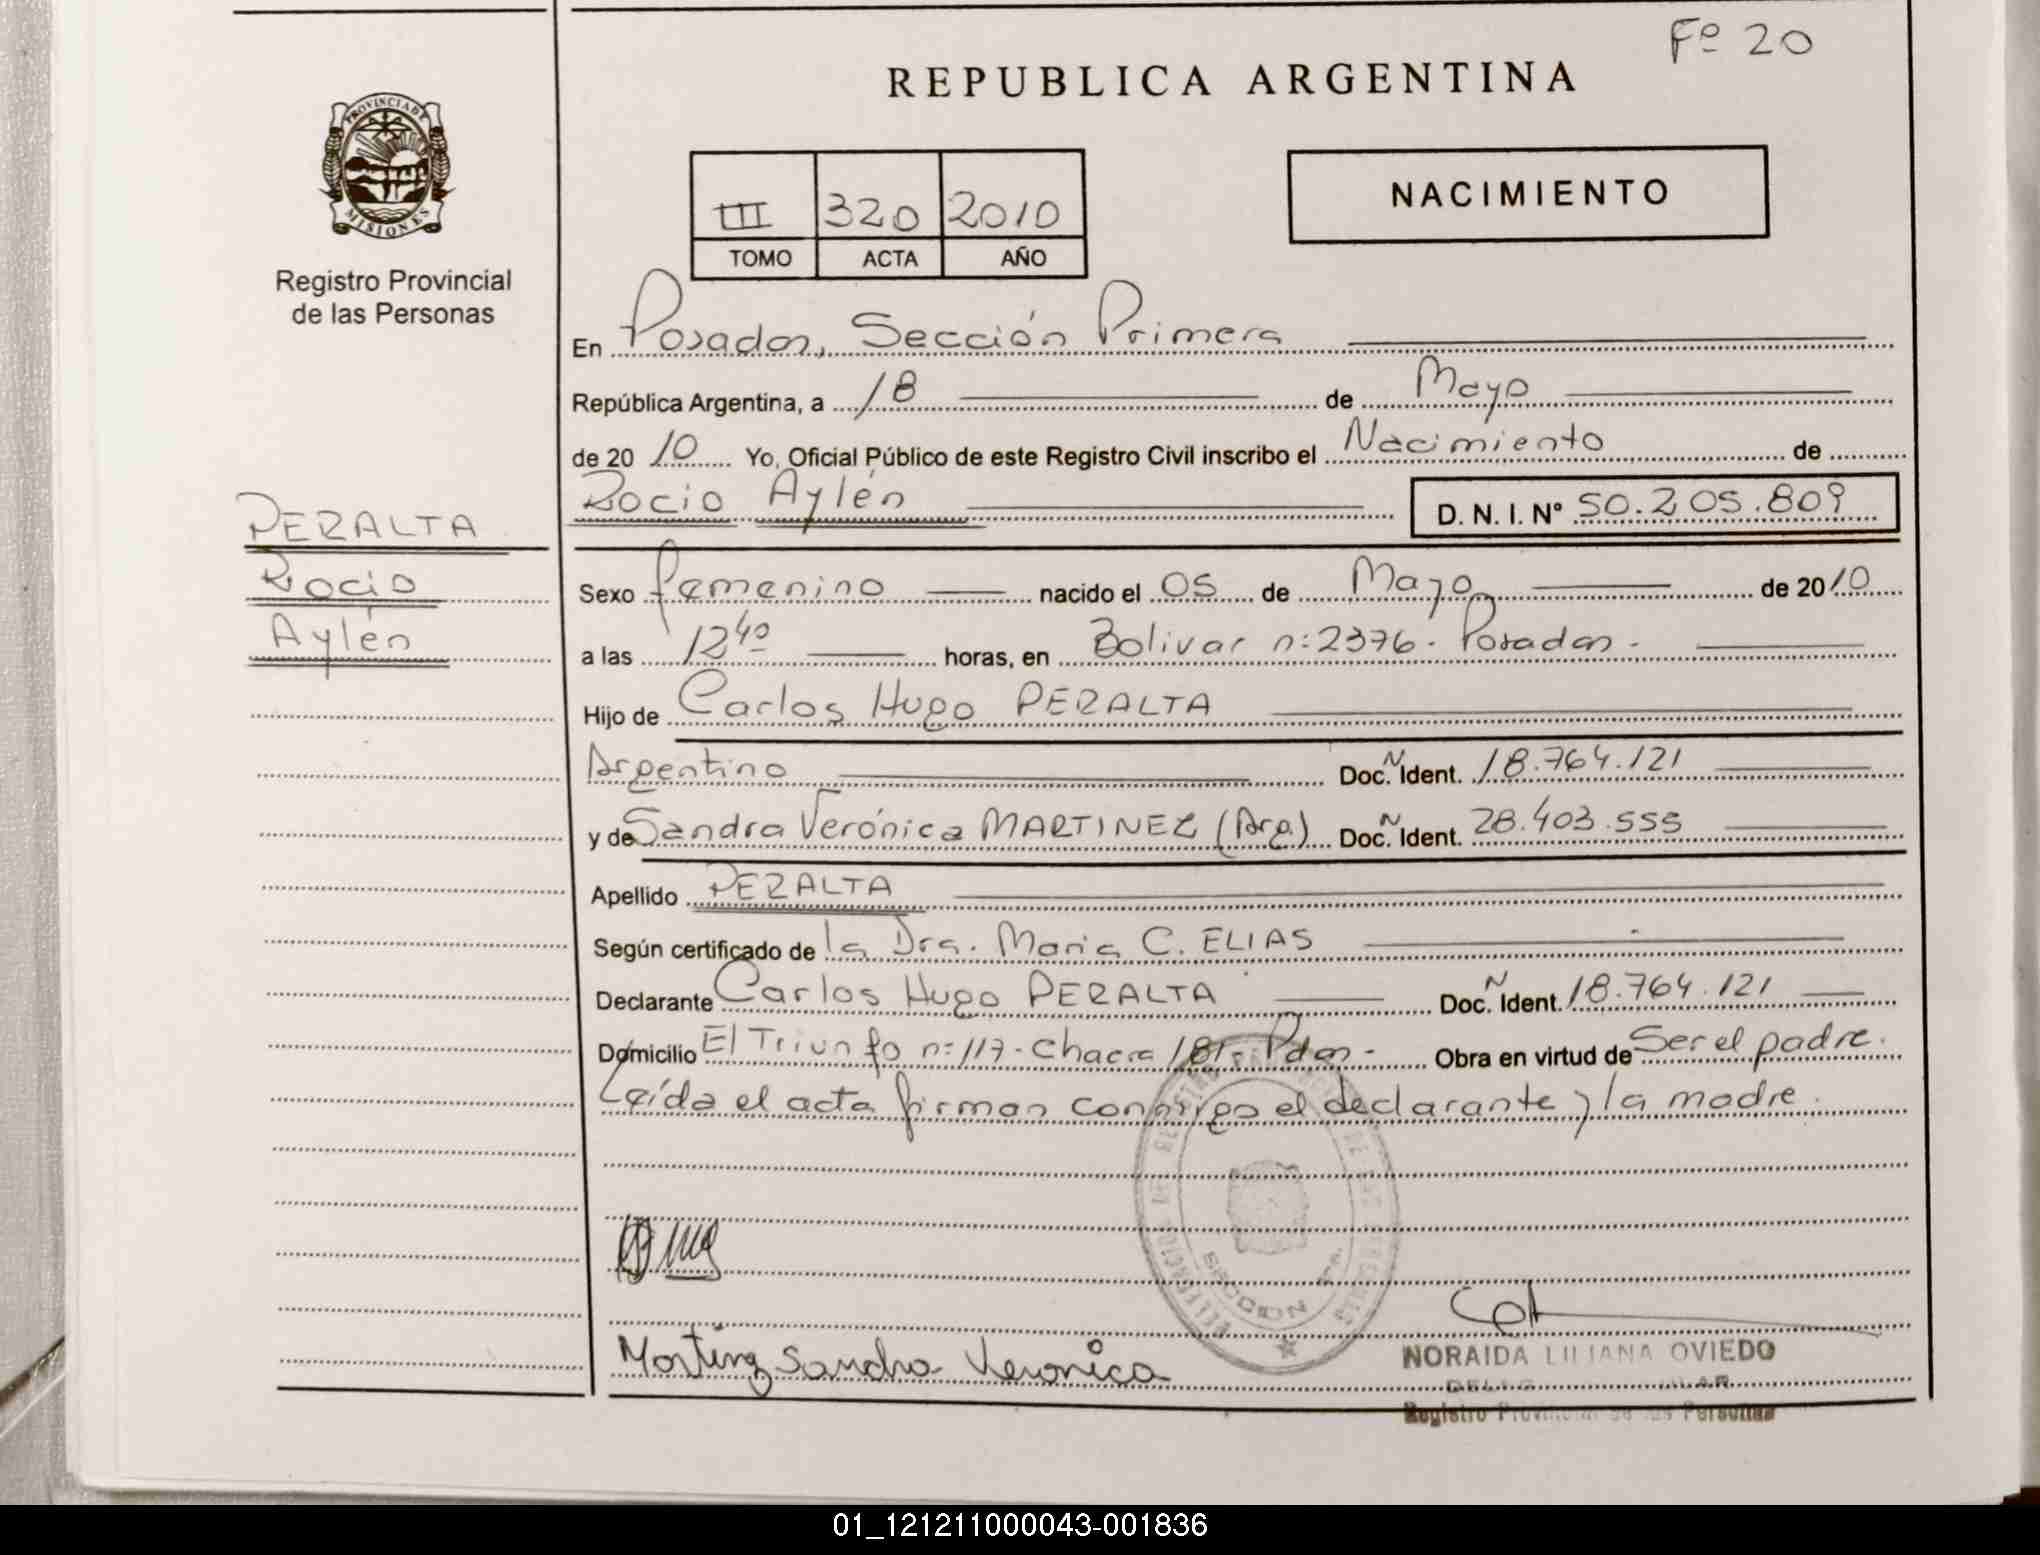 Fº 20
REPUBLICA ARGENTINA
PROVINCIA DE
MISIONES
Registro Provincial
de las Personas
III 320 2010
TOMO ACTA AÑO
NACIMIENTO
En Posadas, Sección Primera
República Argentina, a 18 de Mayo
de 20 10 Yo, Oficial Público de este Registro Civil inscribo el Nacimiento de
Rocio Aylén D. N. I. N° 50.205.809
PERALTA
Rocio
Aylén
Sexo femenino nacido el 05 de Mayo de 2010
a las 12 40 horas, en Bolivar n: 2376 - Posadas -
Hijo de Carlos Hugo PERALTA
Argentino Doc. N Ident. 18.764.121
y de Sandra Verónica MARTINEZ (Arg.) Doc. N Ident. 28.403.555
Apellido PERALTA
Según certificado de la Dra. Maria C. ELIAS
Declarante Carlos Hugo PERALTA Doc. N Ident. 18.764.121
Domicilio El Triunfo n: 117 - Chacra 181 - Pdas - Obra en virtud de Ser el padre.
Leída el acta firman conmigo el declarante y la madre.
SECCION
Martinz Sandra Veronica
NORAIDA LILIANA OVIEDO
Registro Provincial de las Personas
01_121211000043-001836